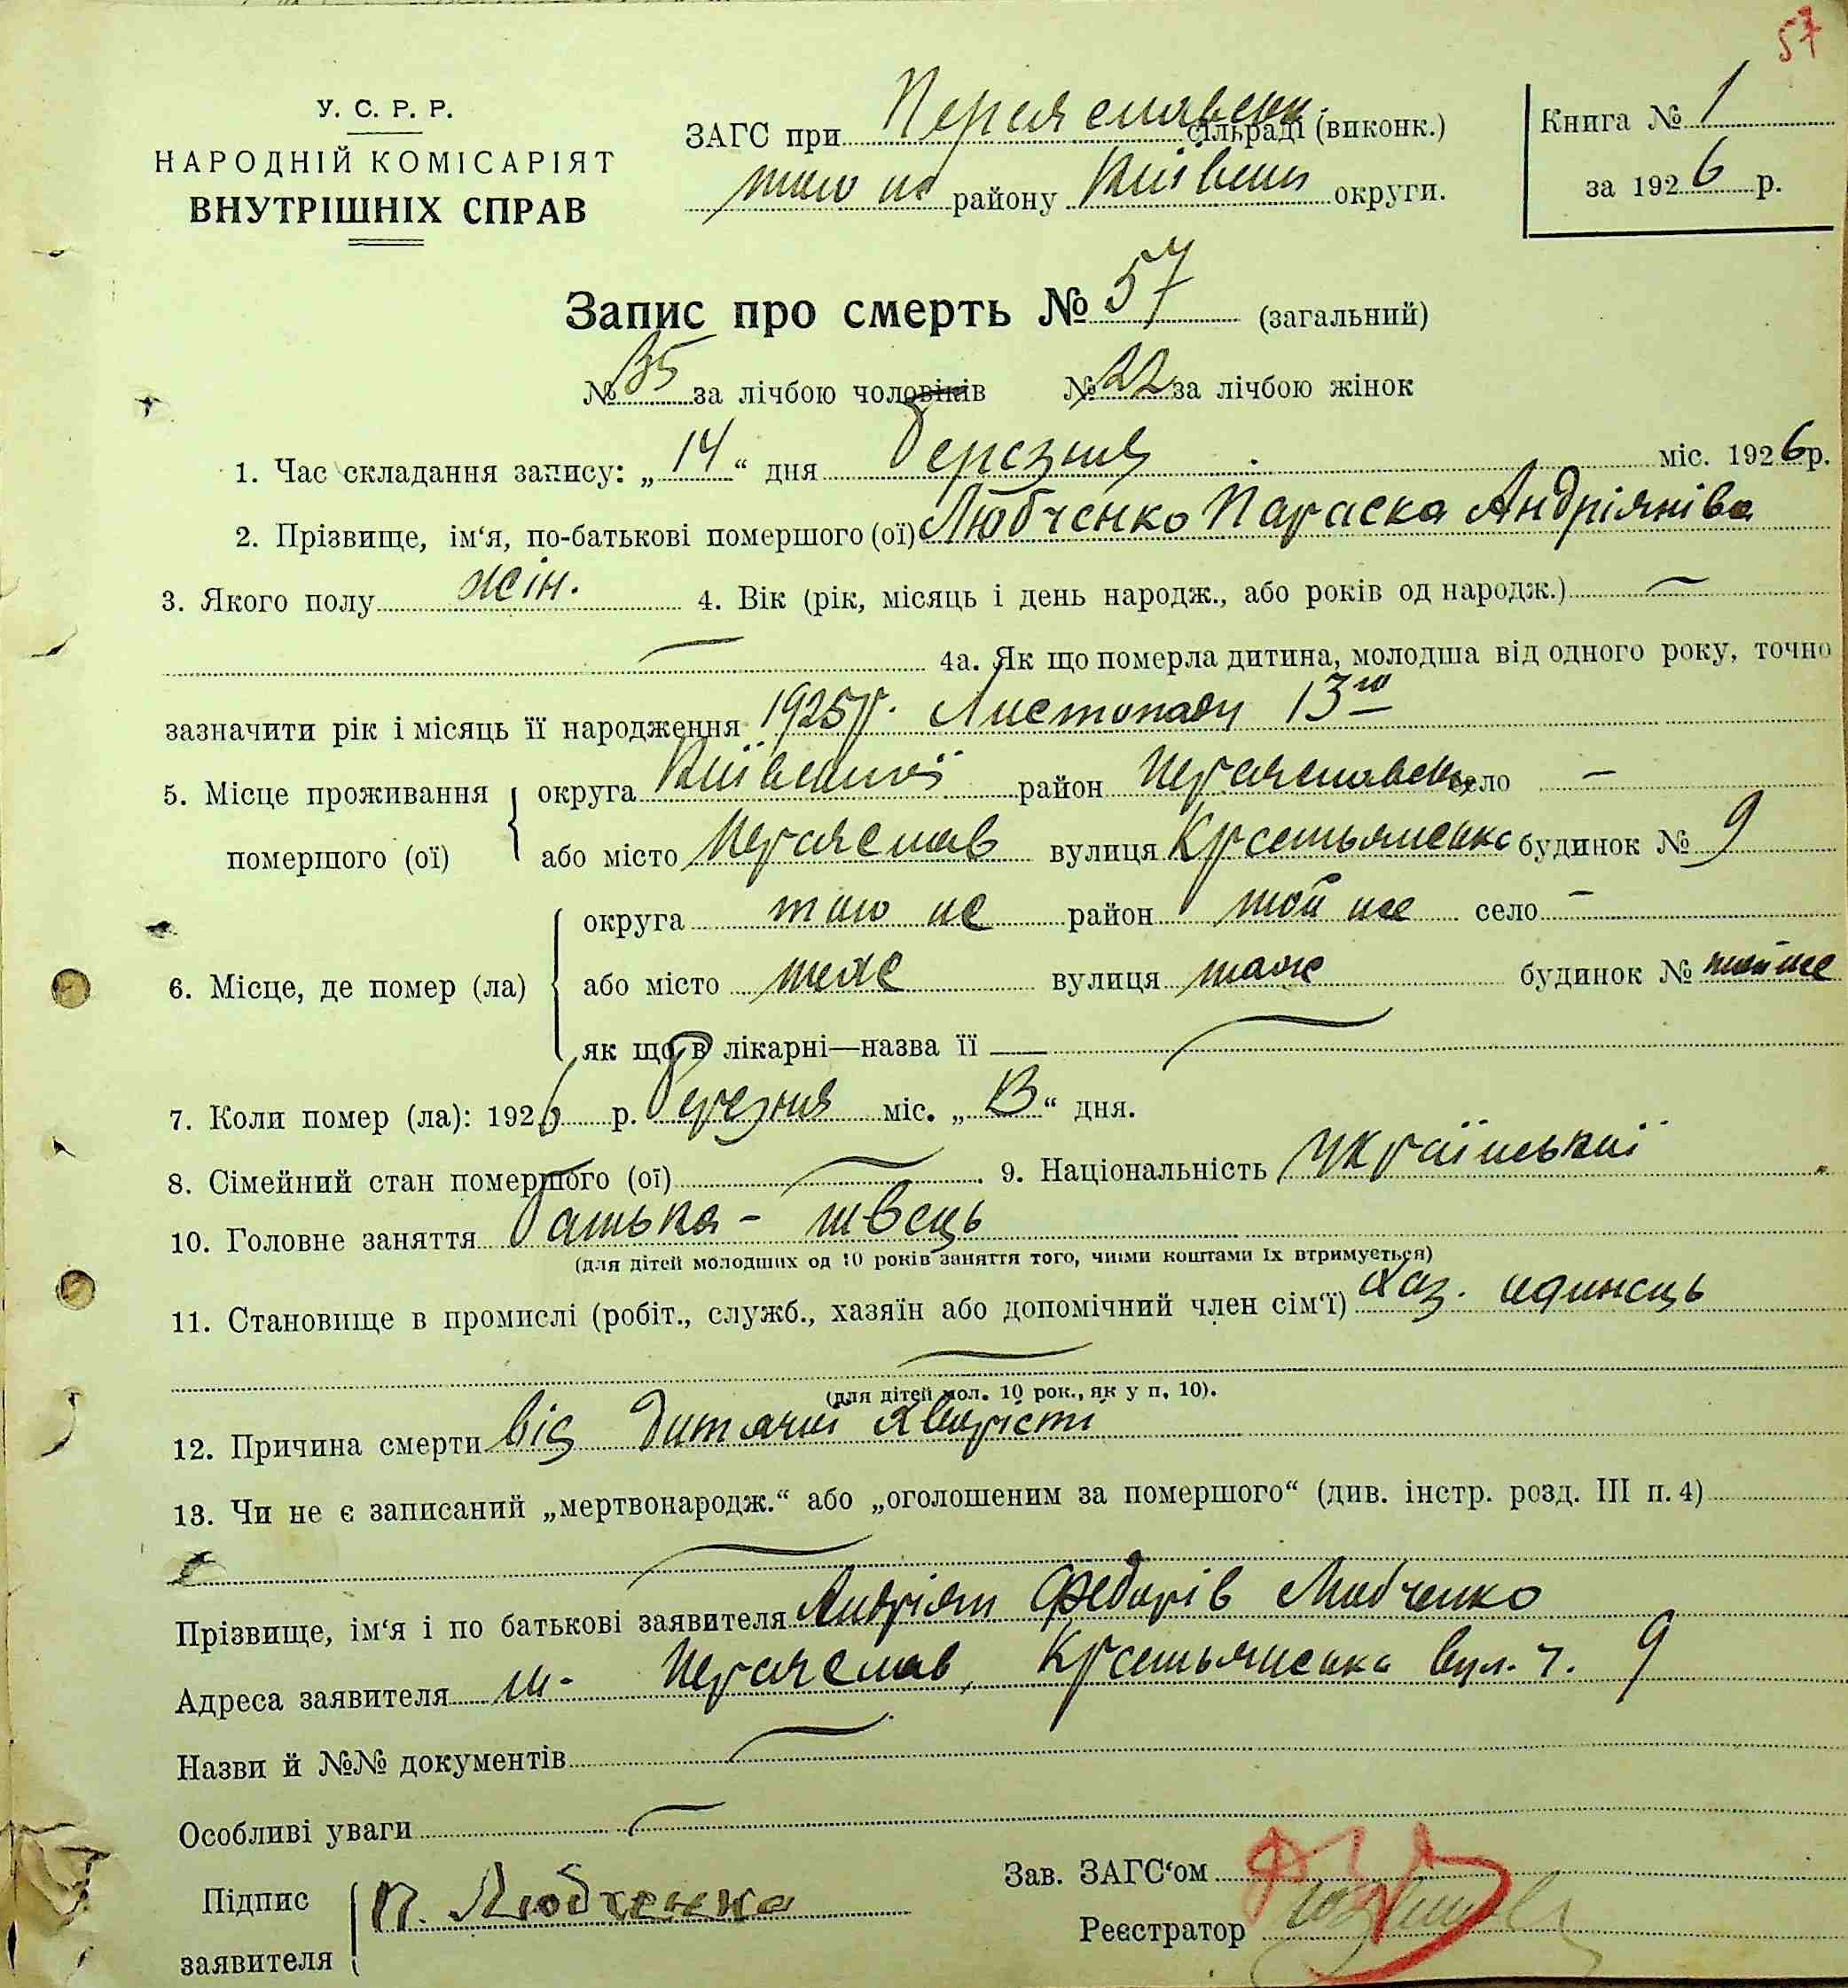 57
У. С. Р. Р.
НАРОДНІЙ КОМІСАРІЯТ
ВНУТРІШНІХ СПРАВ
ЗАГС при Переяславськ. сільраді (виконк.)
того ж району Київськ округи.
Книга № 1
за 1926 р.
Запис про смерть № 57 (загальний)
№ 35 за лічбою чоловіків № 22 за лічбою жінок
1. Час складання запису: „14“ дня березня міс. 1926 р.
2. Прізвище, ім‘я, по-батькові помершого (ої) Любченко Параска Андріянівa
3. Якого полу жін. 4. Вік (рік, місяць і день народж., або років од народж.) —
— 4а. Як що померла дитина, молодша від одного року, точно
зазначити рік і місяць її народження 1925 р. Листопаду 13го
5. Місце проживання помершого (ої) округа Київської район Переяславськ село —
або місто Переяслав вулиця Крестьянська будинок № 9
6. Місце, де помер (ла) округа того ж район той же село —
або місто теж вулиця та ж будинок № той же
як що в лікарні—назва її —
7. Коли помер (ла): 1926 р. березня міс. „13“ дня.
8. Сімейний стан помершого (ої) — 9. Національність Української
10. Головне заняття батька - швець
(для дітей молодших од 10 років заняття того, чиїми коштами їх втримується)
11. Становище в промислі (робіт., служб., хазяїн або допомічний член сім‘ї) хаз. одинець
—
(для дітей мол. 10 рок., як у п. 10).
12. Причина смерти від дитячої
13. Чи не є записаний „мертвонародж.“ або „оголошеним за помершого“ (див. інстр. розд. III п. 4)
—
Прізвище, ім‘я і по батькові заявителя Андріян Федорів Любченко
Адреса заявителя м. Переяслав, Крестьянська вул. ч. 9
Назви й №№ документів —
Особливі уваги —
Підпис заявителя П. Любченко
Зав. ЗАГС‘ом
Реєстратор